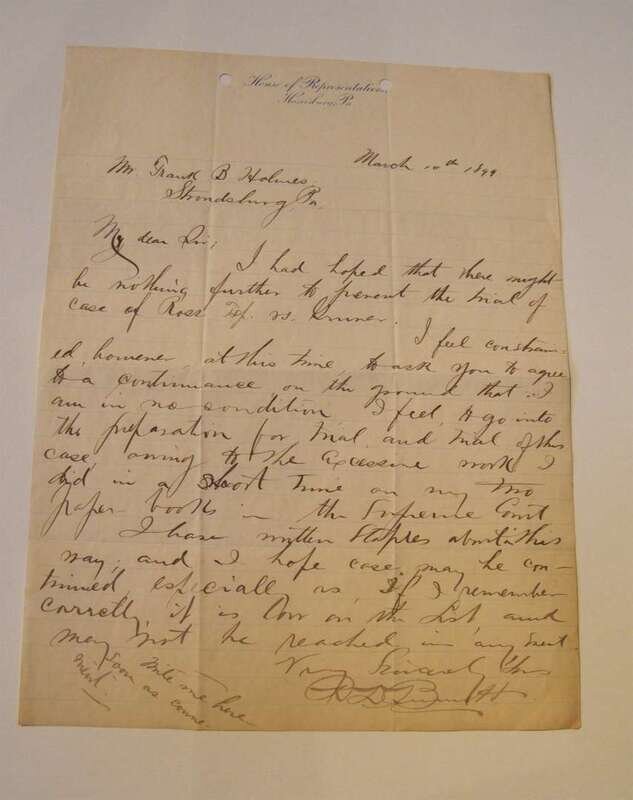 House of Representatives
Harrisburg, Pa
March 10th 1899
Mr. Frank B Holmes
Stroudsburg, Pa.
My dear Sir;
I had hoped that there might
be nothing further to prevent the trial of
case of Ross vs.
I feel constrain-
ed, however, at this time, to ask you to agree
to a continuance on the ground that I
am in no condition I feel, to go into
the preparation for trial and trial of this
case, owing to the excessive work I
did in a short time on my two
paper books in the Supreme Court
I have written Staples about this
way, and I hope case may be con-
tinued, especially as, if I remember
correctly, it is low on the List, and
may not be reached in any event.
Very Sincerely Yours
Write me here
soon as conve-
nient.